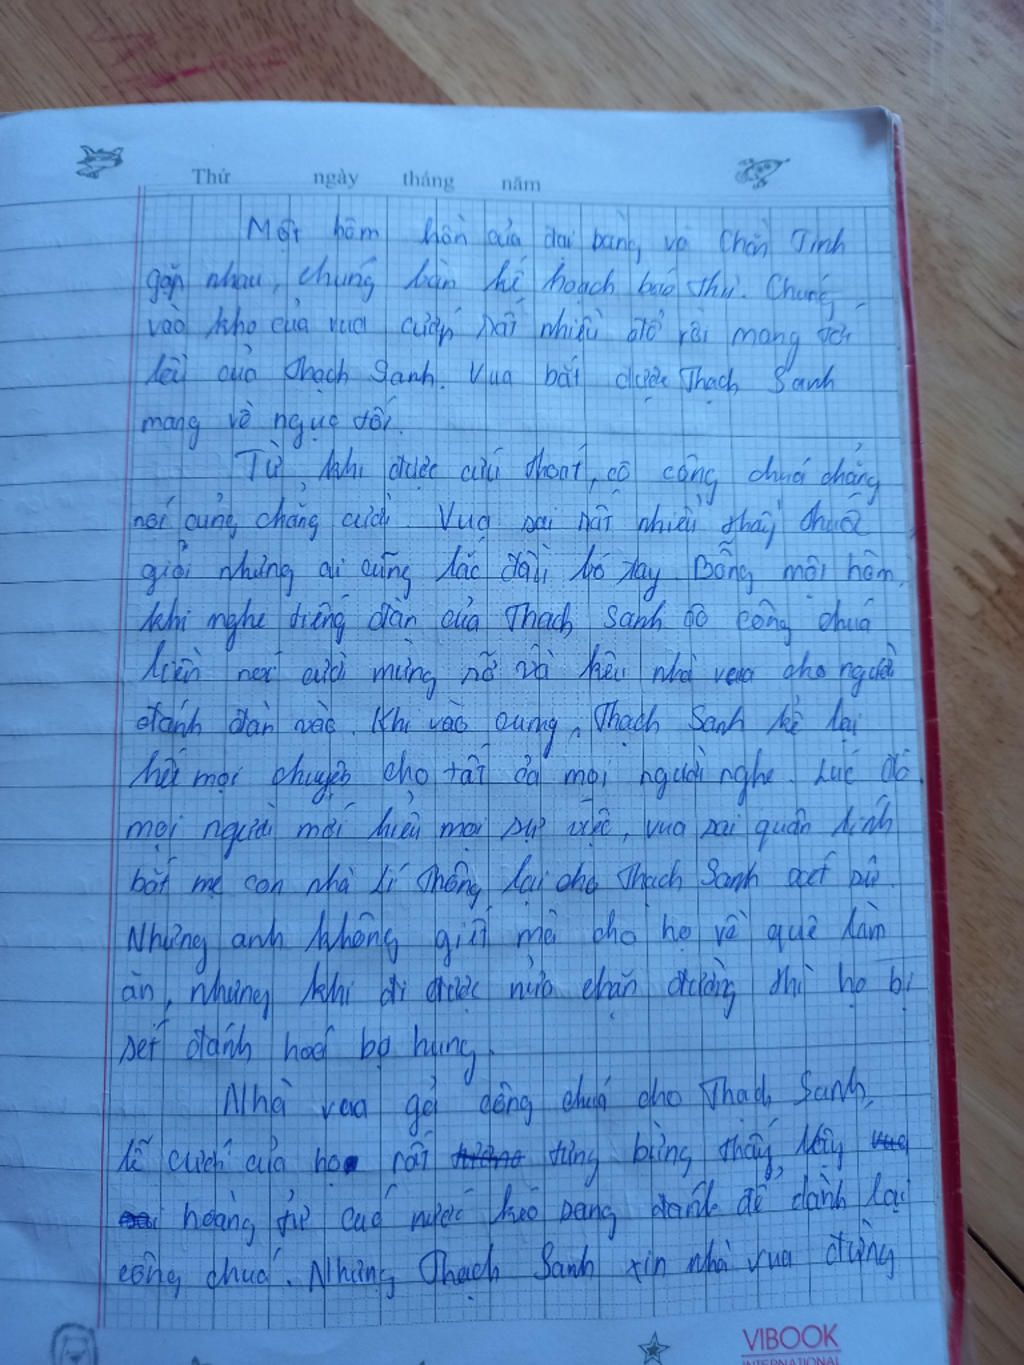 Thứ ngày tháng năm
Một hôm hồn của đại bàng và Chằn Tinh
gặp nhau, chúng bàn kế hoạch báo thù. Chúng
vào kho của vua cướp rất nhiều đồ rồi mang tới
lều của Thạch Sanh. Vua bắt được Thạch Sanh
mang về ngục tối.
Từ khi được cứu thoát, cô công chúa chẳng
nói cũng chẳng cười. Vua sai rất nhiều thầy thuốc
giỏi nhưng ai cũng lắc đầu bó tay. Bỗng một hôm,
khi nghe tiếng đàn của Thạch Sanh cô công chúa
liền nói cười mừng rỡ và kêu nhà vua cho người
đánh đàn vào. Khi vào cung, Thạch Sanh kể lại
hết mọi chuyện cho tất cả mọi người nghe. Lúc đó
mọi người mới hiểu mọi sự việc, vua sai quân lính
bắt mẹ con nhà Lí Thông lại cho Thạch Sanh xét xử.
Nhưng anh không giết mà cho họ về quê làm
ăn, nhưng khi đi được nửa chặn đường thì họ bị
sét đánh hoá bọ hung.
Nhà vua gả công chúa cho Thạch Sanh,
lễ cưới của họ rất tưng bừng thấy vậy
hoàng tử các nước kéo sang đánh để dành lại
công chúa. Nhưng Thạch Sanh xin nhà vua đừng
VIBOOK
INTERNATIONAL